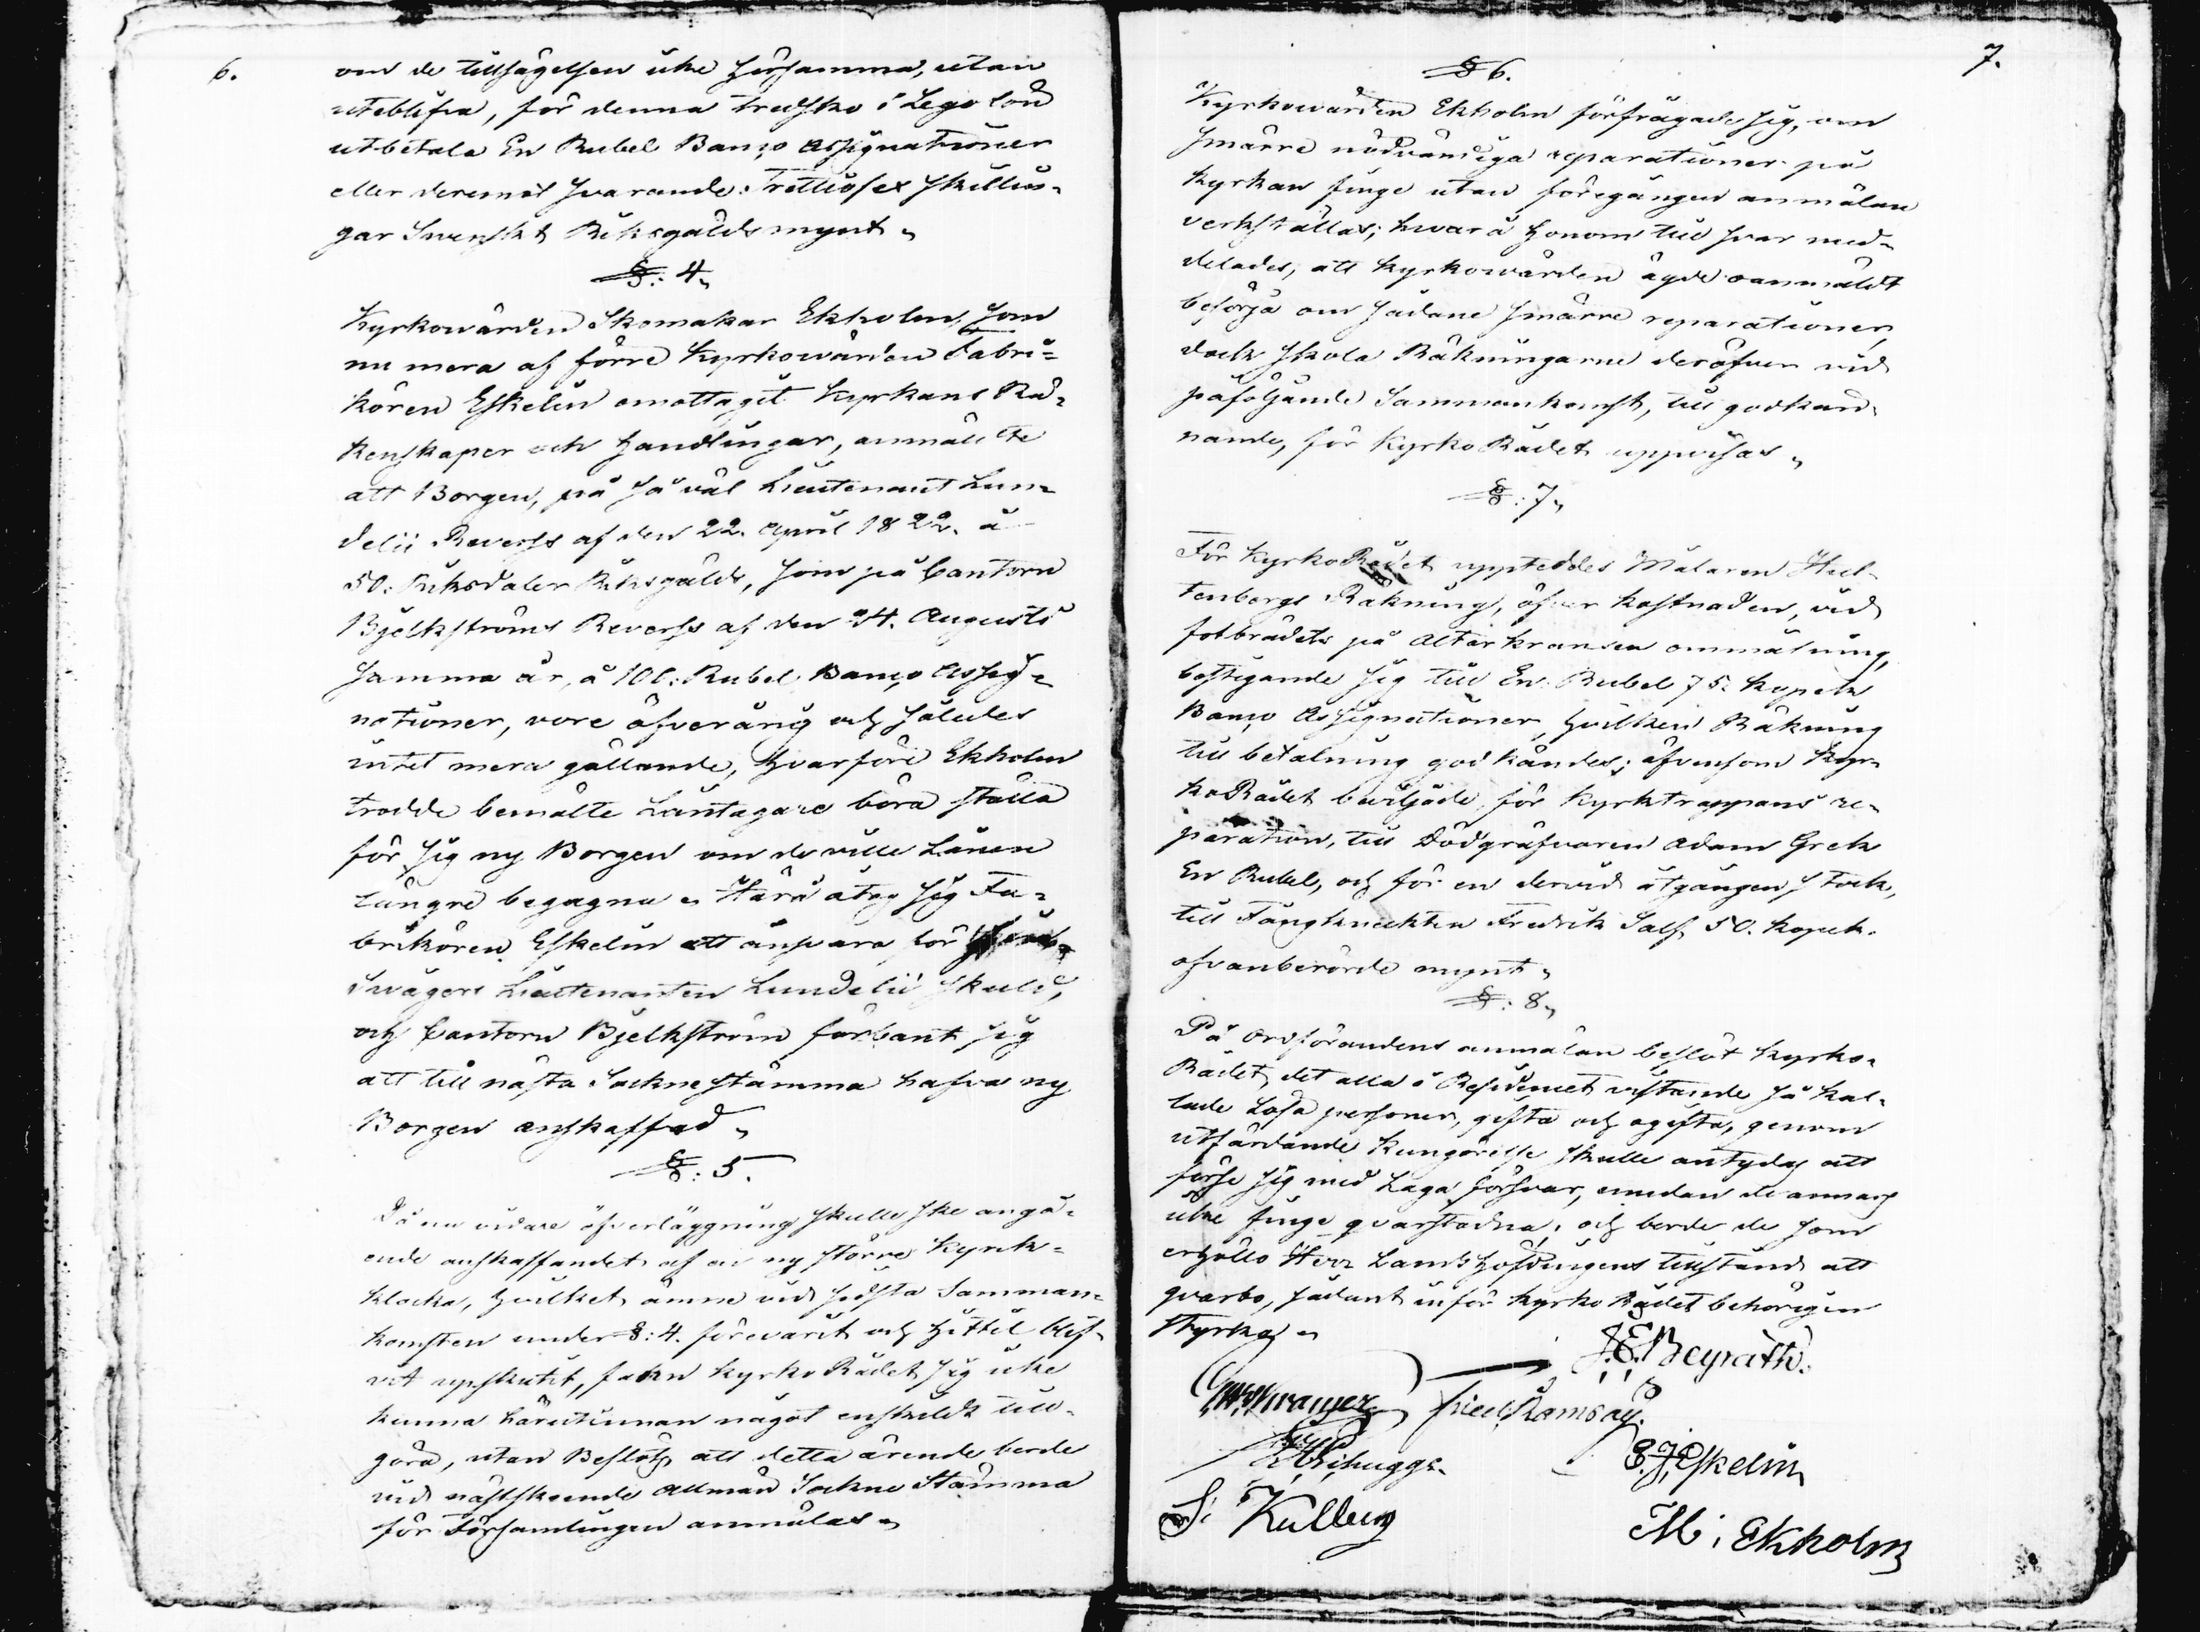 6.
om de tillsägelsen icke hörsamma, utan
uteblifva, för denna tredsko i Lego lön
utbetala En Rubel Banco Assignationer
eller deremot svarande Trettiosex skillin-
gar Swenskt Riksgälds mynt.
§: 4.
Kyrkowärden Skomakar Ekholm, som
nu mera af förre Kyrkowärden Fabri-
kören Eskelin emottagit Kyrkans Rä-
kenskaper och handlingar, anmälte
att Borgen, på så väl Lieutenant Lun-
delii Reverss af den 22. April 1822. å
50. Riksdaler Riksgälds, som på Cantorn
Bjelkströms Reverss af den 24. Augusti
samma år, å 100: Rubel Banco Assig-
nationer, vore öfverårig och således
intet mera gällande, hvarföre Ekholm
trodde bemälte Låntagare böra ställa
för sig ny Borgen om de ville Lånen
längre begagna. Härå åtog sig Fa-
brikören Eskelin att ansvara för
Swågers Lieutenanten Lundelii skuld,
och Cantorn Bjelkström förbant sig
att till nästa Sockne stämma hafva ny
Borgen anskaffad.
§: 5.
Då nu vidare öfverläggning skulle ske angå-
ende anskaffandet af en ny större Kyrk-
klocka, hvilket ämne vid sidsta Samman-
komsten under §: 4. förevarit och hittil blif-
vit upskutit, fann Kyrko Rådet sig icke
kunna härutinnan något enskildt till-
göra, utan Beslöts, att detta ärende borde
vid nästskeende allmän Sockne Stämma
för Församlingen anmälas.
7.
§ 6.
Kyrkowärden Ekholm förfrågade sig, om
smärre nödvändiga reparationer på
Kyrkan finge utan föregången anmälan
verkställas; hvarå honom till svar med-
delades, att Kyrkowärden ägde oanmäldt
besörja om sådane smärre reparationer,
dock skola Räkningarne deröfver vid
påföljande Sammankomst, till godkän-
nande, för Kyrko Rådet uppvisas.
§: 7.
För Kyrko Rådet uppteddes Målaren Hul-
tenbergs Räkning, öfver kostnaden, vid
fotbrädets på Altarkransen ommålning,
bestigande sig till En Rubel 75. kopek
Banco Assignationer, hvilken Räkning
till betalning godkändes; äfvensom Kyr-
ko Rådet beviljade för Kyrktrappans re-
paration, till Dödgräfvaren Adam Grek
En Rubel, och för en dervid åtgången stock,
till Fångknekten Fredrik Salf 50. kopek.
ofvanberörde mynt.
§: 8.
På Ordförandens anmälan beslöt Kyrko-
Rådet, det alla i Residencet vistande så kal-
lade Lösa personer, gifta och ogifta, genom
utfärdande kungörelse skulle antydas att
förse sig med Laga försvar, emedan de annars
icke finge qvarstadna, och borde de som
erhöllo Herr Landshöfdingens tillstånd att
qvarbo, sådant inför Kyrko Rådet behörigen
styrka.
J. E. Beyrath.
Fried Ramsay.
E. J. Eskelin
S. Kullberg
M. Ekholm